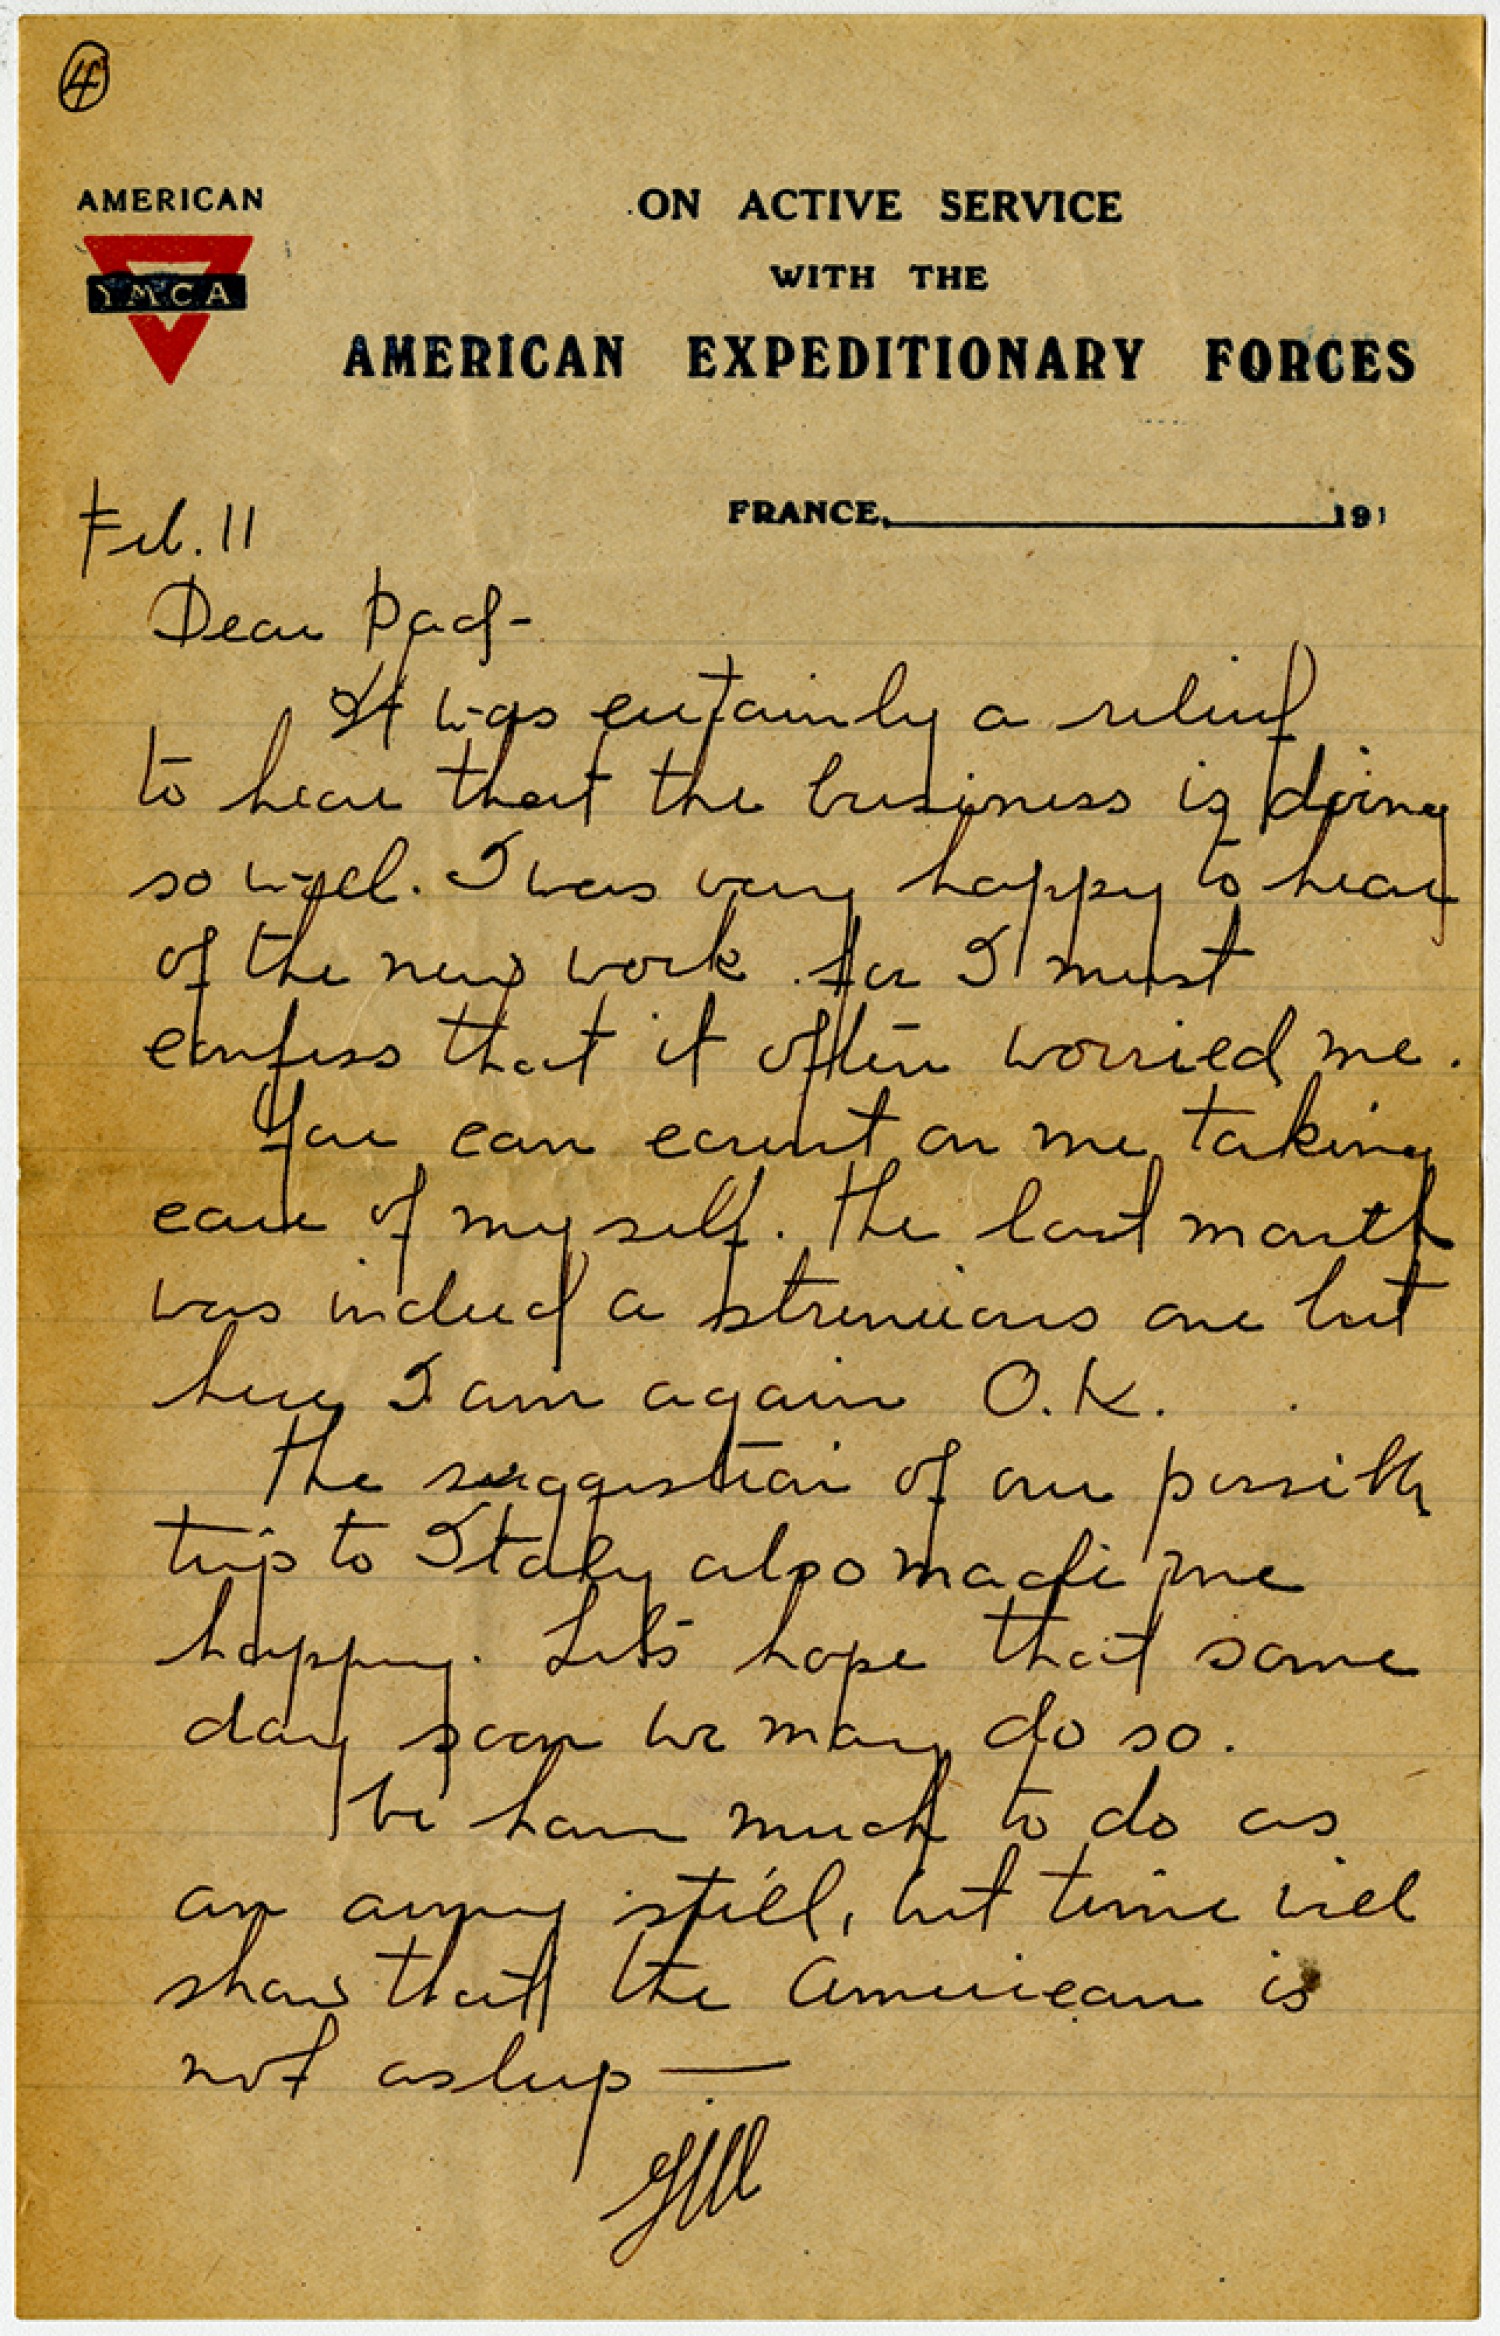 4
AMERICAN
YMCA
ON ACTIVE SERVICE
WITH THE
AMERICAN EXPEDITIONARY FORCES
FRANCE, 191
Feb. 11
Dear Dad-
It was certainly a relief
to hear that the business is doing
so well. I was very happy to hear
of the new work for I must
confess that it often worried me.
You can count on me taking
care of myself. The last month
was indeed a strenuous one but
here I am again O.K.
The suggestion of our possible
trip to Italy also made me
happy. Let's hope that some
day soon we may do so.
We have much to do as
an army still, but time will
show that the American is
not asleep —